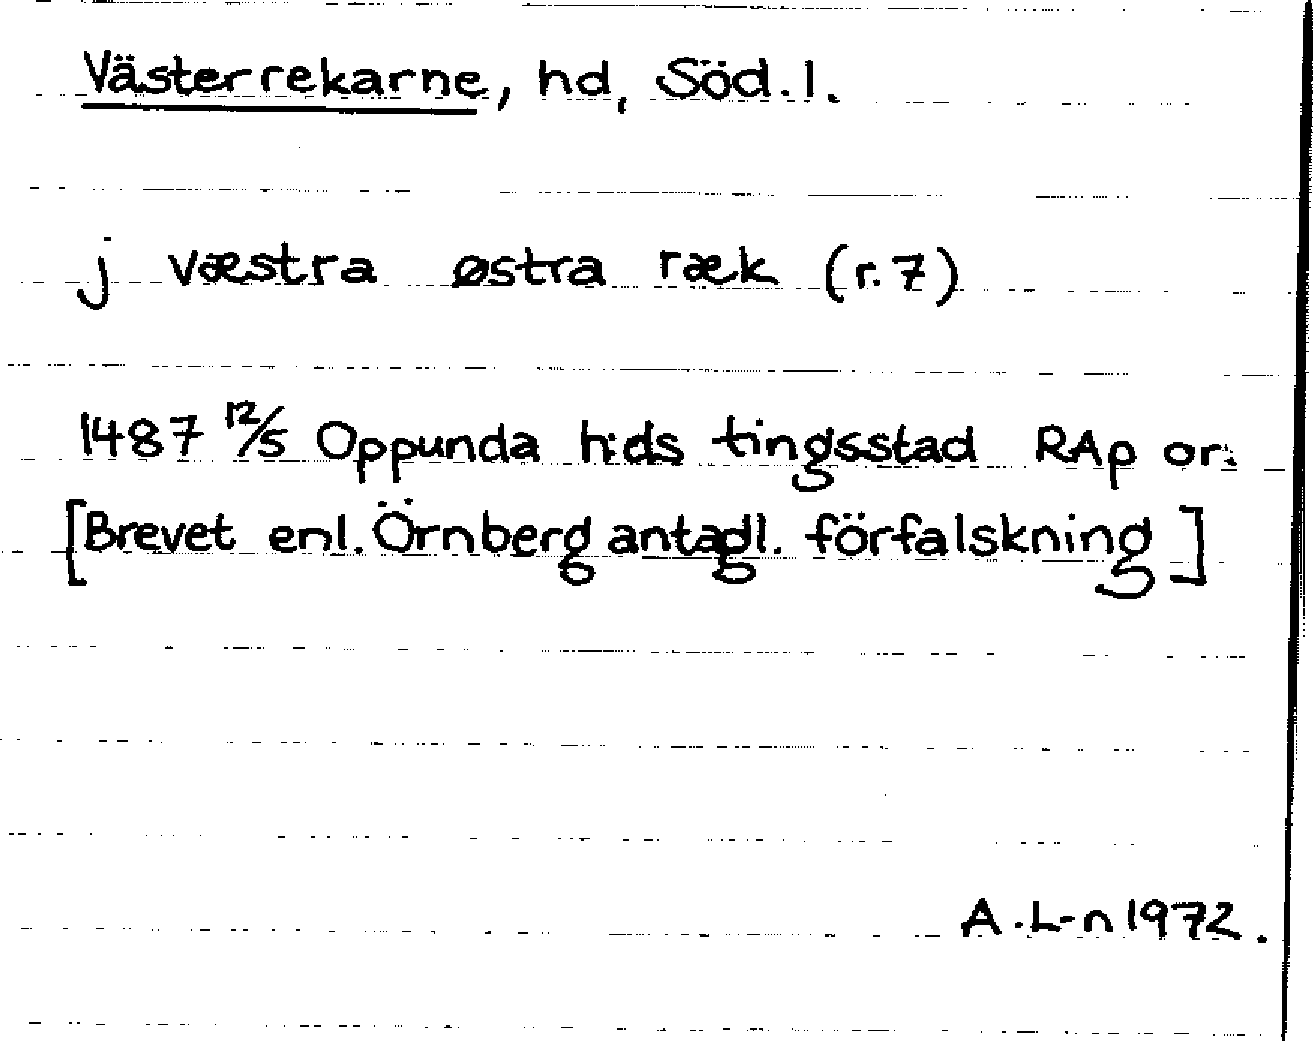 Västerrekarne, hd, Söd. l.
j væstra østra ræk (r. 7)
1487 12/5 Oppunda h:ds tingsstad RAp or.
[Brevet enl. Örnberg antagl. förfalskning]
A. L-n 1972.